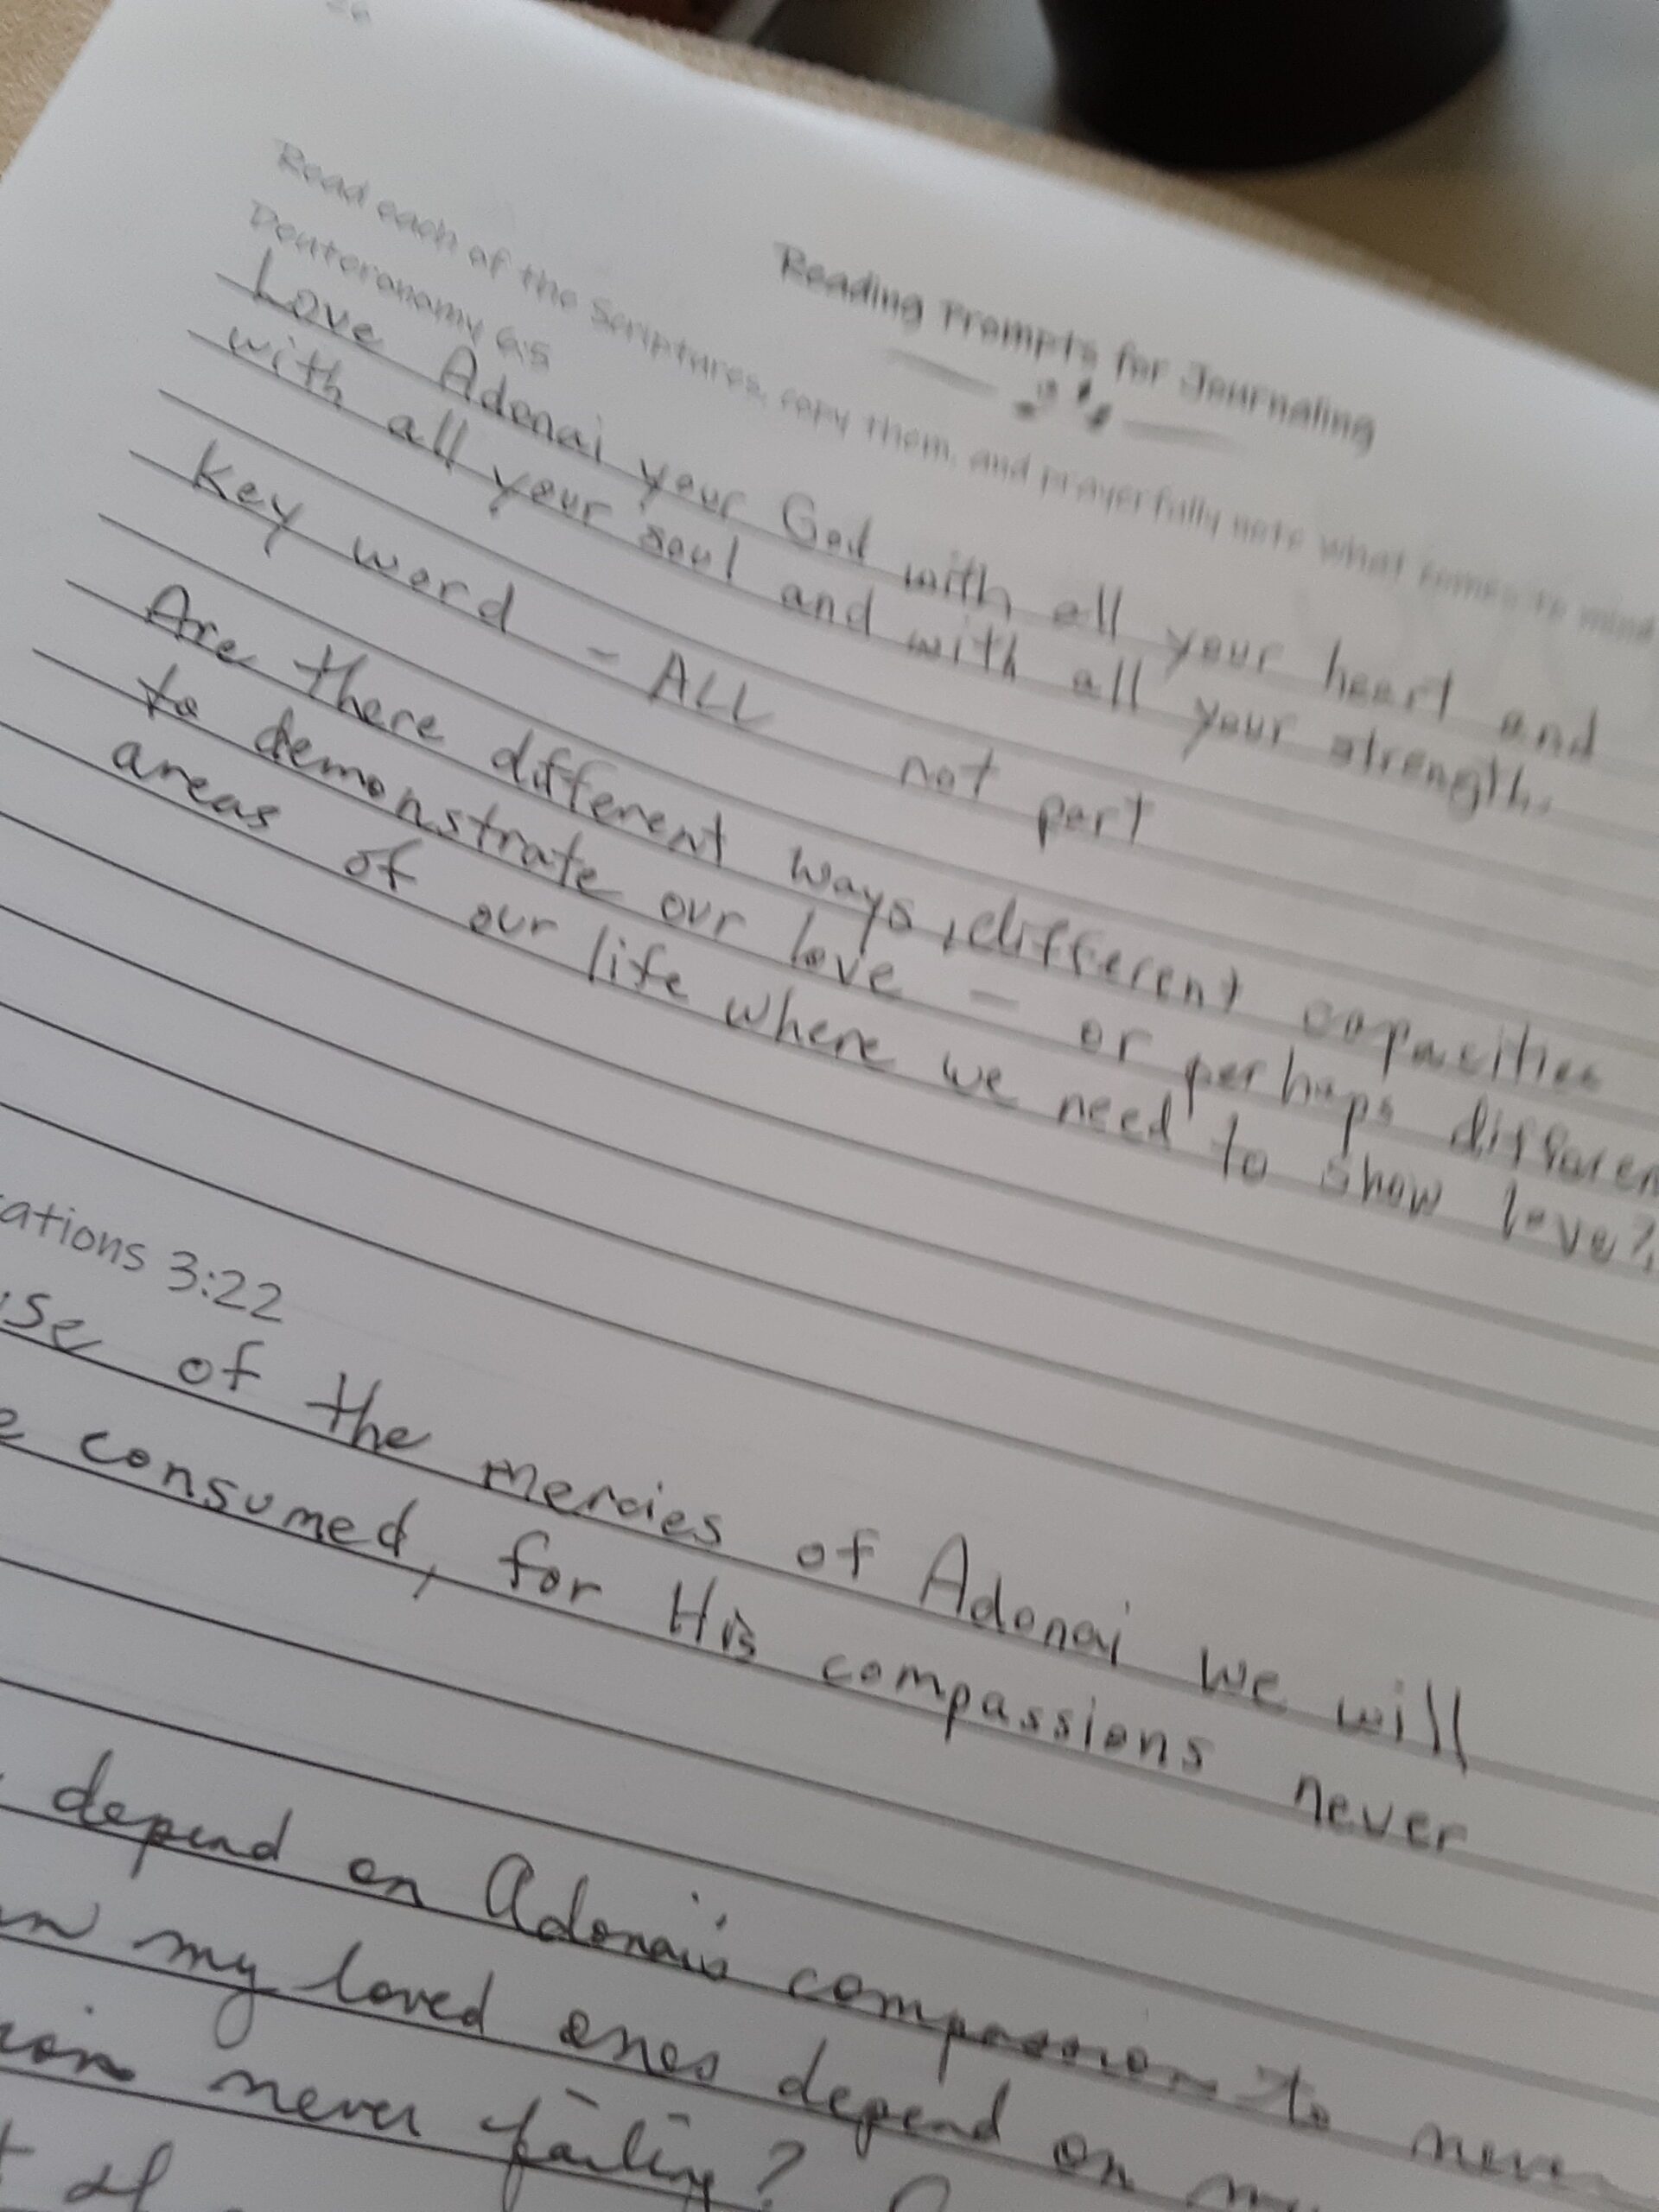 Reading Prompts for Journaling
Read each of the Scriptures, copy them, and prayerfully note what comes to mind
Deuteronomy 6:5
Love Adonai your God with all your heart and
with all your soul and with all your strength.
Key word - ALL not part
Are there different ways, different capacities
to demonstrate our love - or perhaps differen
areas of our life where we need to show love?
ations 3:22
use of the mercies of Adonai we will
e consumed, for His compassions never
depend on Adonai's compassion to never
my loved ones depend on my
never failing?